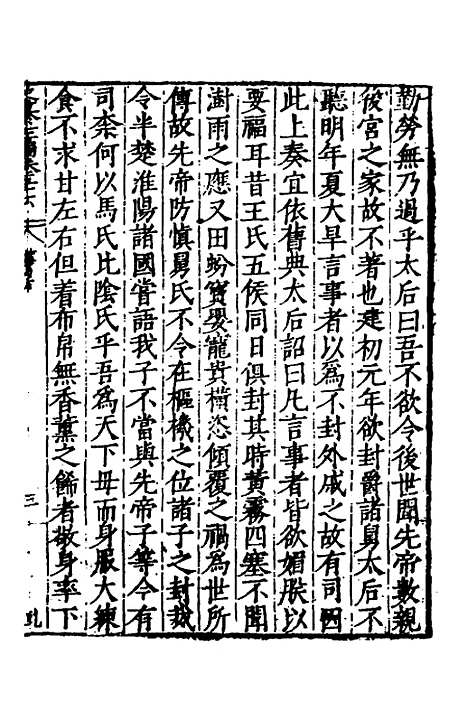 勤勞無乃過乎太后曰吾不欲令後世聞先帝數親
後宮之家故不著也建初元年欲封爵諸舅太后不
聽明年夏大旱言事者以爲不封外戚之故有司因
此上奏宜依舊典太后詔曰凡言事者皆欲媚朕以
要福耳昔王氏五侯同日俱封其時黃霧四塞不聞
澍雨之應又田蚡竇嬰寵貴橫恣傾覆之禍爲世所
傳故先帝防慎舅氏不令在樞機之位諸子之封裁
令半楚淮陽諸國嘗語我子不當與先帝子等今有
司柰何以馬氏比陰氏乎吾爲天下母而身服大練
食不求甘左右但着布帛無香薰之餙者欲身率下
三